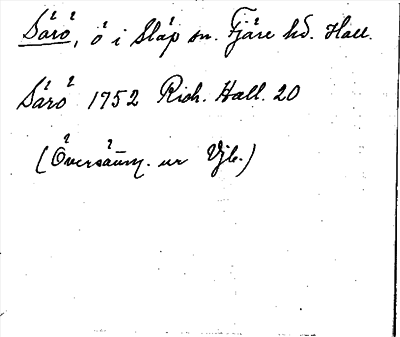 Särö, ö i Släp sn. Fjäre hd. Hall.
Särö 1752 Rich. Hall. 20
(Översämn. ur Vjb.)